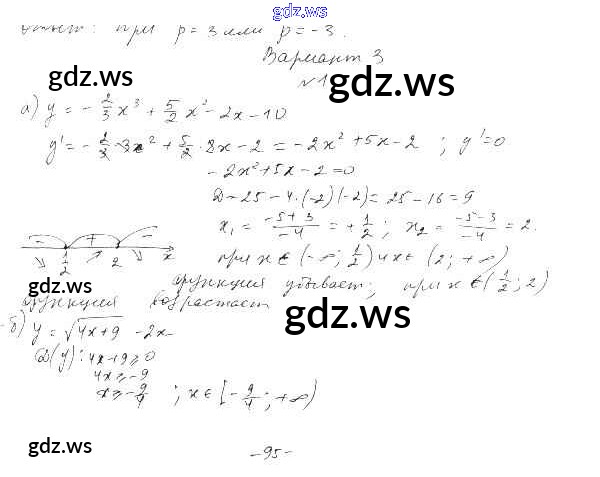 gdz.ws
ответ: при p = 3 или p = -3.
Вариант 3
gdz.ws
gdz.ws
№1
а) y = -2/3 x³ + 5/2 x² - 2x - 10
y' = -2/3 · 3x² + 5/2 · 2x - 2 = -2x² + 5x - 2 ; y' = 0
-2x² + 5x - 2 = 0
D = 25 - 4·(-2)(-2) = 25 - 16 = 9
x₁ = (-5+3)/-4 = +1/2 ; x₂ = (-5-3)/-4 = 2.
- + - 1/2 2 x
при x ∈ (-∞; 1/2) и x ∈ (2; +∞)
gdz.ws
функция убывает; при x ∈ (1/2; 2)
функция возрастает
gdz.ws
б) y = √(4x+9) - 2x
D(y): 4x+9 ≥ 0
4x ≥ -9
x ≥ -9/4 ; x ∈ [-9/4; +∞)
gdz.ws
-95-